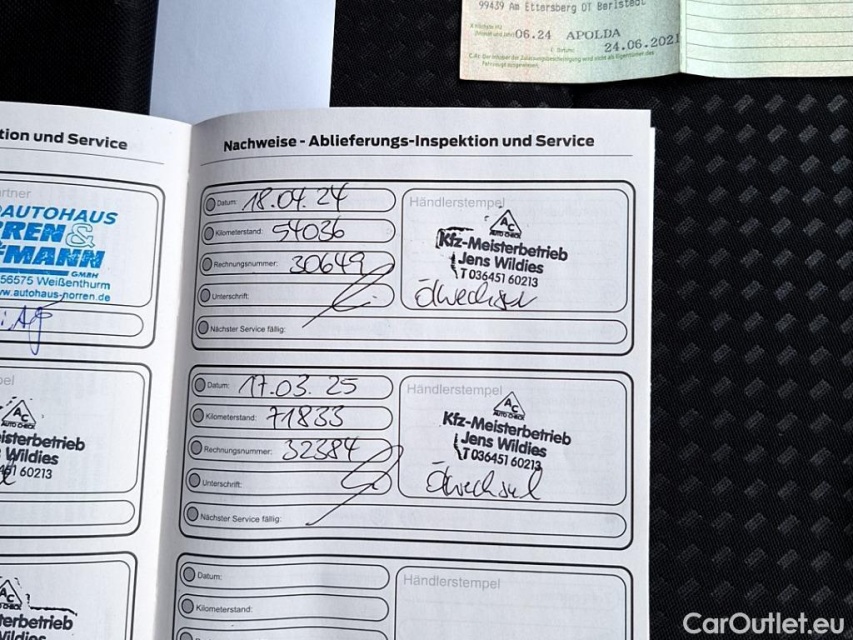 99439 Am Ettersberg OT Berlstedt
06.24 APOLDA
24.06.2021
tion und Service
artner
AUTOHAUS
RREN &
MANN
GMBH
56575 Weißenthurm
w.autohaus-norren.de
pel
AC
AUTO CHECK
eisterbetrieb
Wildies
451 60213
AC
AUTO CHECK
terbetrieb
Nachweise - Ablieferungs-Inspektion und Service
Datum: 18.04.24
Kilometerstand: 54036
Rechnungsnummer: 30649
Unterschrift:
Nächster Service fällig:
Händlerstempel
AC
AUTO CHECK
Kfz-Meisterbetrieb
Jens Wildies
T 036451 60213
Ölwechsel
Datum: 17.03.25
Kilometerstand: 71833
Rechnungsnummer: 32384
Unterschrift:
Nächster Service fällig:
Händlerstempel
AC
AUTO CHECK
Kfz-Meisterbetrieb
Jens Wildies
T 036451 60213
Ölwechsel
Datum:
Kilometerstand:
Händlerstempel
CarOutlet.eu